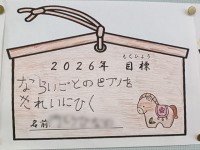 もくひょう
2026年 目標
ならいごとのピアノを
きれいにひく
名前